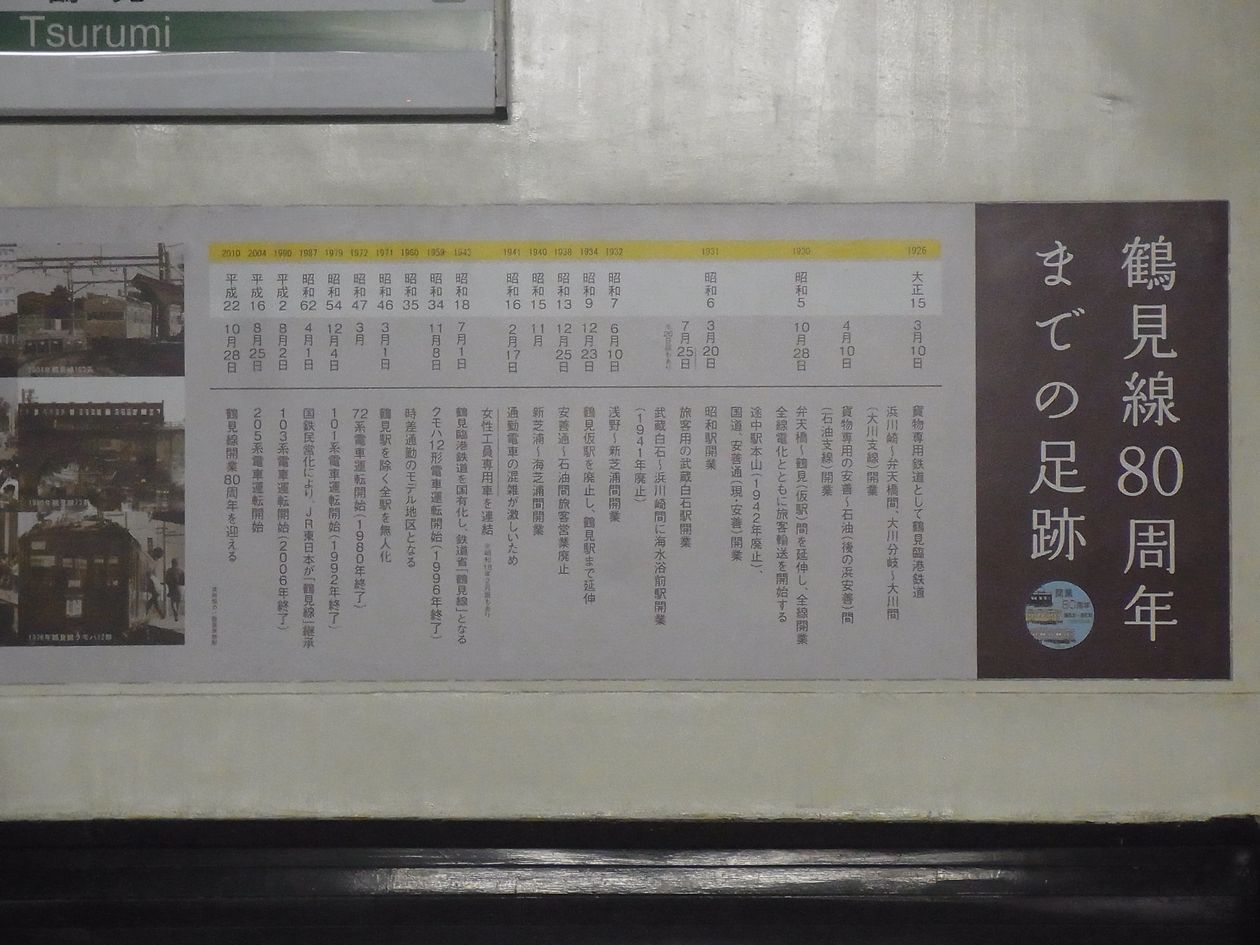 Tsurumi
鶴見線80周年
までの足跡
開業
80周年
1926
大正15
3月10日
貨物専用鉄道として鶴見臨港鉄道
浜川崎～弁天橋間、大川分岐～大川間
(大川支線)開業
4月10日
貨物専用の安善～石油(後の浜安善)間
(石油支線)開業
1930
昭和5
10月28日
弁天橋～鶴見(仮駅)間を延伸し、全線開業
全線電化とともに旅客輸送を開始する
途中駅本山(1942年廃止)、
国道、安善通(現・安善)開業
1931
昭和6
3月20日
昭和駅開業
7月25日
旅客用の武蔵白石駅開業
武蔵白石～浜川崎間に海水浴前駅開業
(1941年廃止)
1932
昭和7
6月10日
浅野～新芝浦間開業
1934
昭和9
12月23日
鶴見仮駅を廃止し、鶴見駅まで延伸
1938
昭和13
12月25日
安善通～石油間旅客営業廃止
1940
昭和15
11月
新芝浦～海芝浦間開業
1941
昭和16
2月17日
通勤電車の混雑が激しいため
女性工員専用車を連結
1943
昭和18
7月1日
鶴見臨港鉄道を国有化し、鉄道省「鶴見線」となる
1959
昭和34
11月8日
クモハ12形電車運転開始(1996年終了)
1960
昭和35
時差通勤のモデル地区となる
1971
昭和46
3月1日
鶴見駅を除く全駅を無人化
1972
昭和47
3月
72系電車運転開始(1980年終了)
1979
昭和54
12月4日
101系電車運転開始(1992年終了)
1987
昭和62
4月1日
国鉄民営化により、JR東日本が「鶴見線」継承
1990
平成2
8月2日
103系電車運転開始(2006年終了)
2004
平成16
8月25日
205系電車運転開始
2010
平成22
10月28日
鶴見線開業80周年を迎える